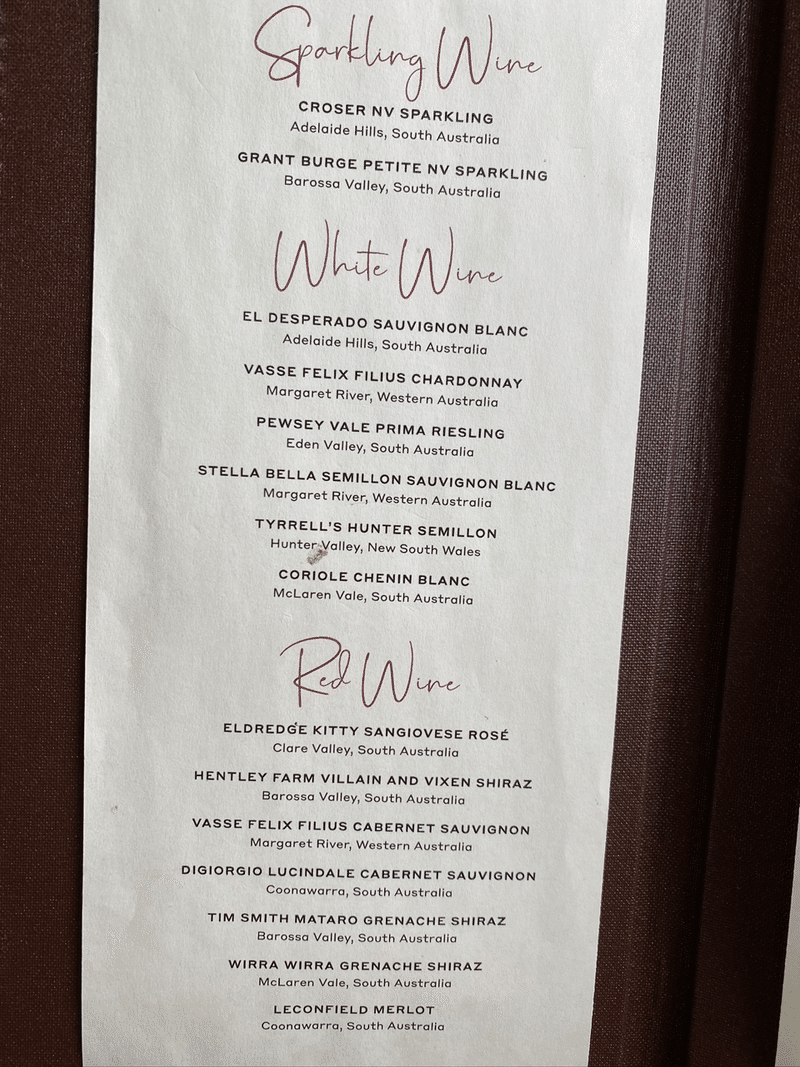 Sparkling Wine
CROSER NV SPARKLING
Adelaide Hills, South Australia
GRANT BURGE PETITE NV SPARKLING
Barossa Valley, South Australia
White Wine
EL DESPERADO SAUVIGNON BLANC
Adelaide Hills, South Australia
VASSE FELIX FILIUS CHARDONNAY
Margaret River, Western Australia
PEWSEY VALE PRIMA RIESLING
Eden Valley, South Australia
STELLA BELLA SEMILLON SAUVIGNON BLANC
Margaret River, Western Australia
TYRRELL'S HUNTER SEMILLON
Hunter Valley, New South Wales
CORIOLE CHENIN BLANC
McLaren Vale, South Australia
Red Wine
ELDREDGE KITTY SANGIOVESE ROSÉ
Clare Valley, South Australia
HENTLEY FARM VILLAIN AND VIXEN SHIRAZ
Barossa Valley, South Australia
VASSE FELIX FILIUS CABERNET SAUVIGNON
Margaret River, Western Australia
DIGIORGIO LUCINDALE CABERNET SAUVIGNON
Coonawarra, South Australia
TIM SMITH MATARO GRENACHE SHIRAZ
Barossa Valley, South Australia
WIRRA WIRRA GRENACHE SHIRAZ
McLaren Vale, South Australia
LECONFIELD MERLOT
Coonawarra, South Australia